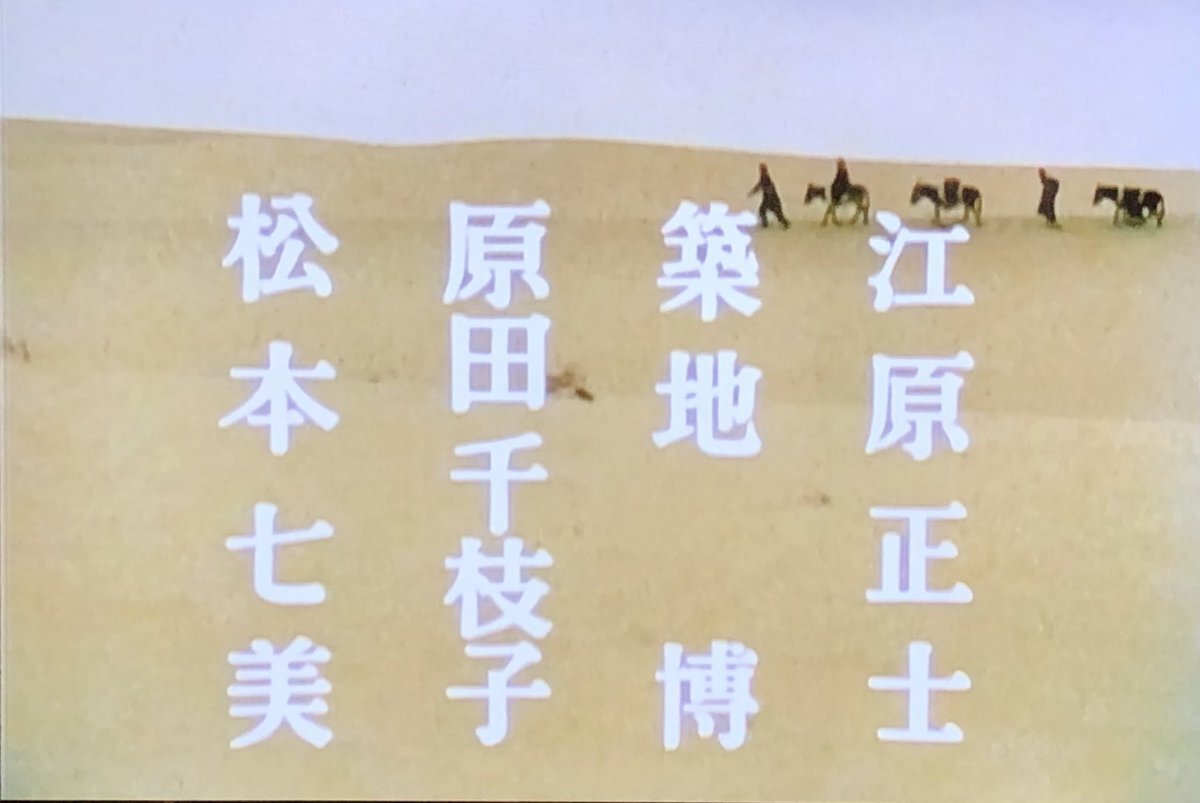 江原正士
築地博
原田千枝子
松本七美